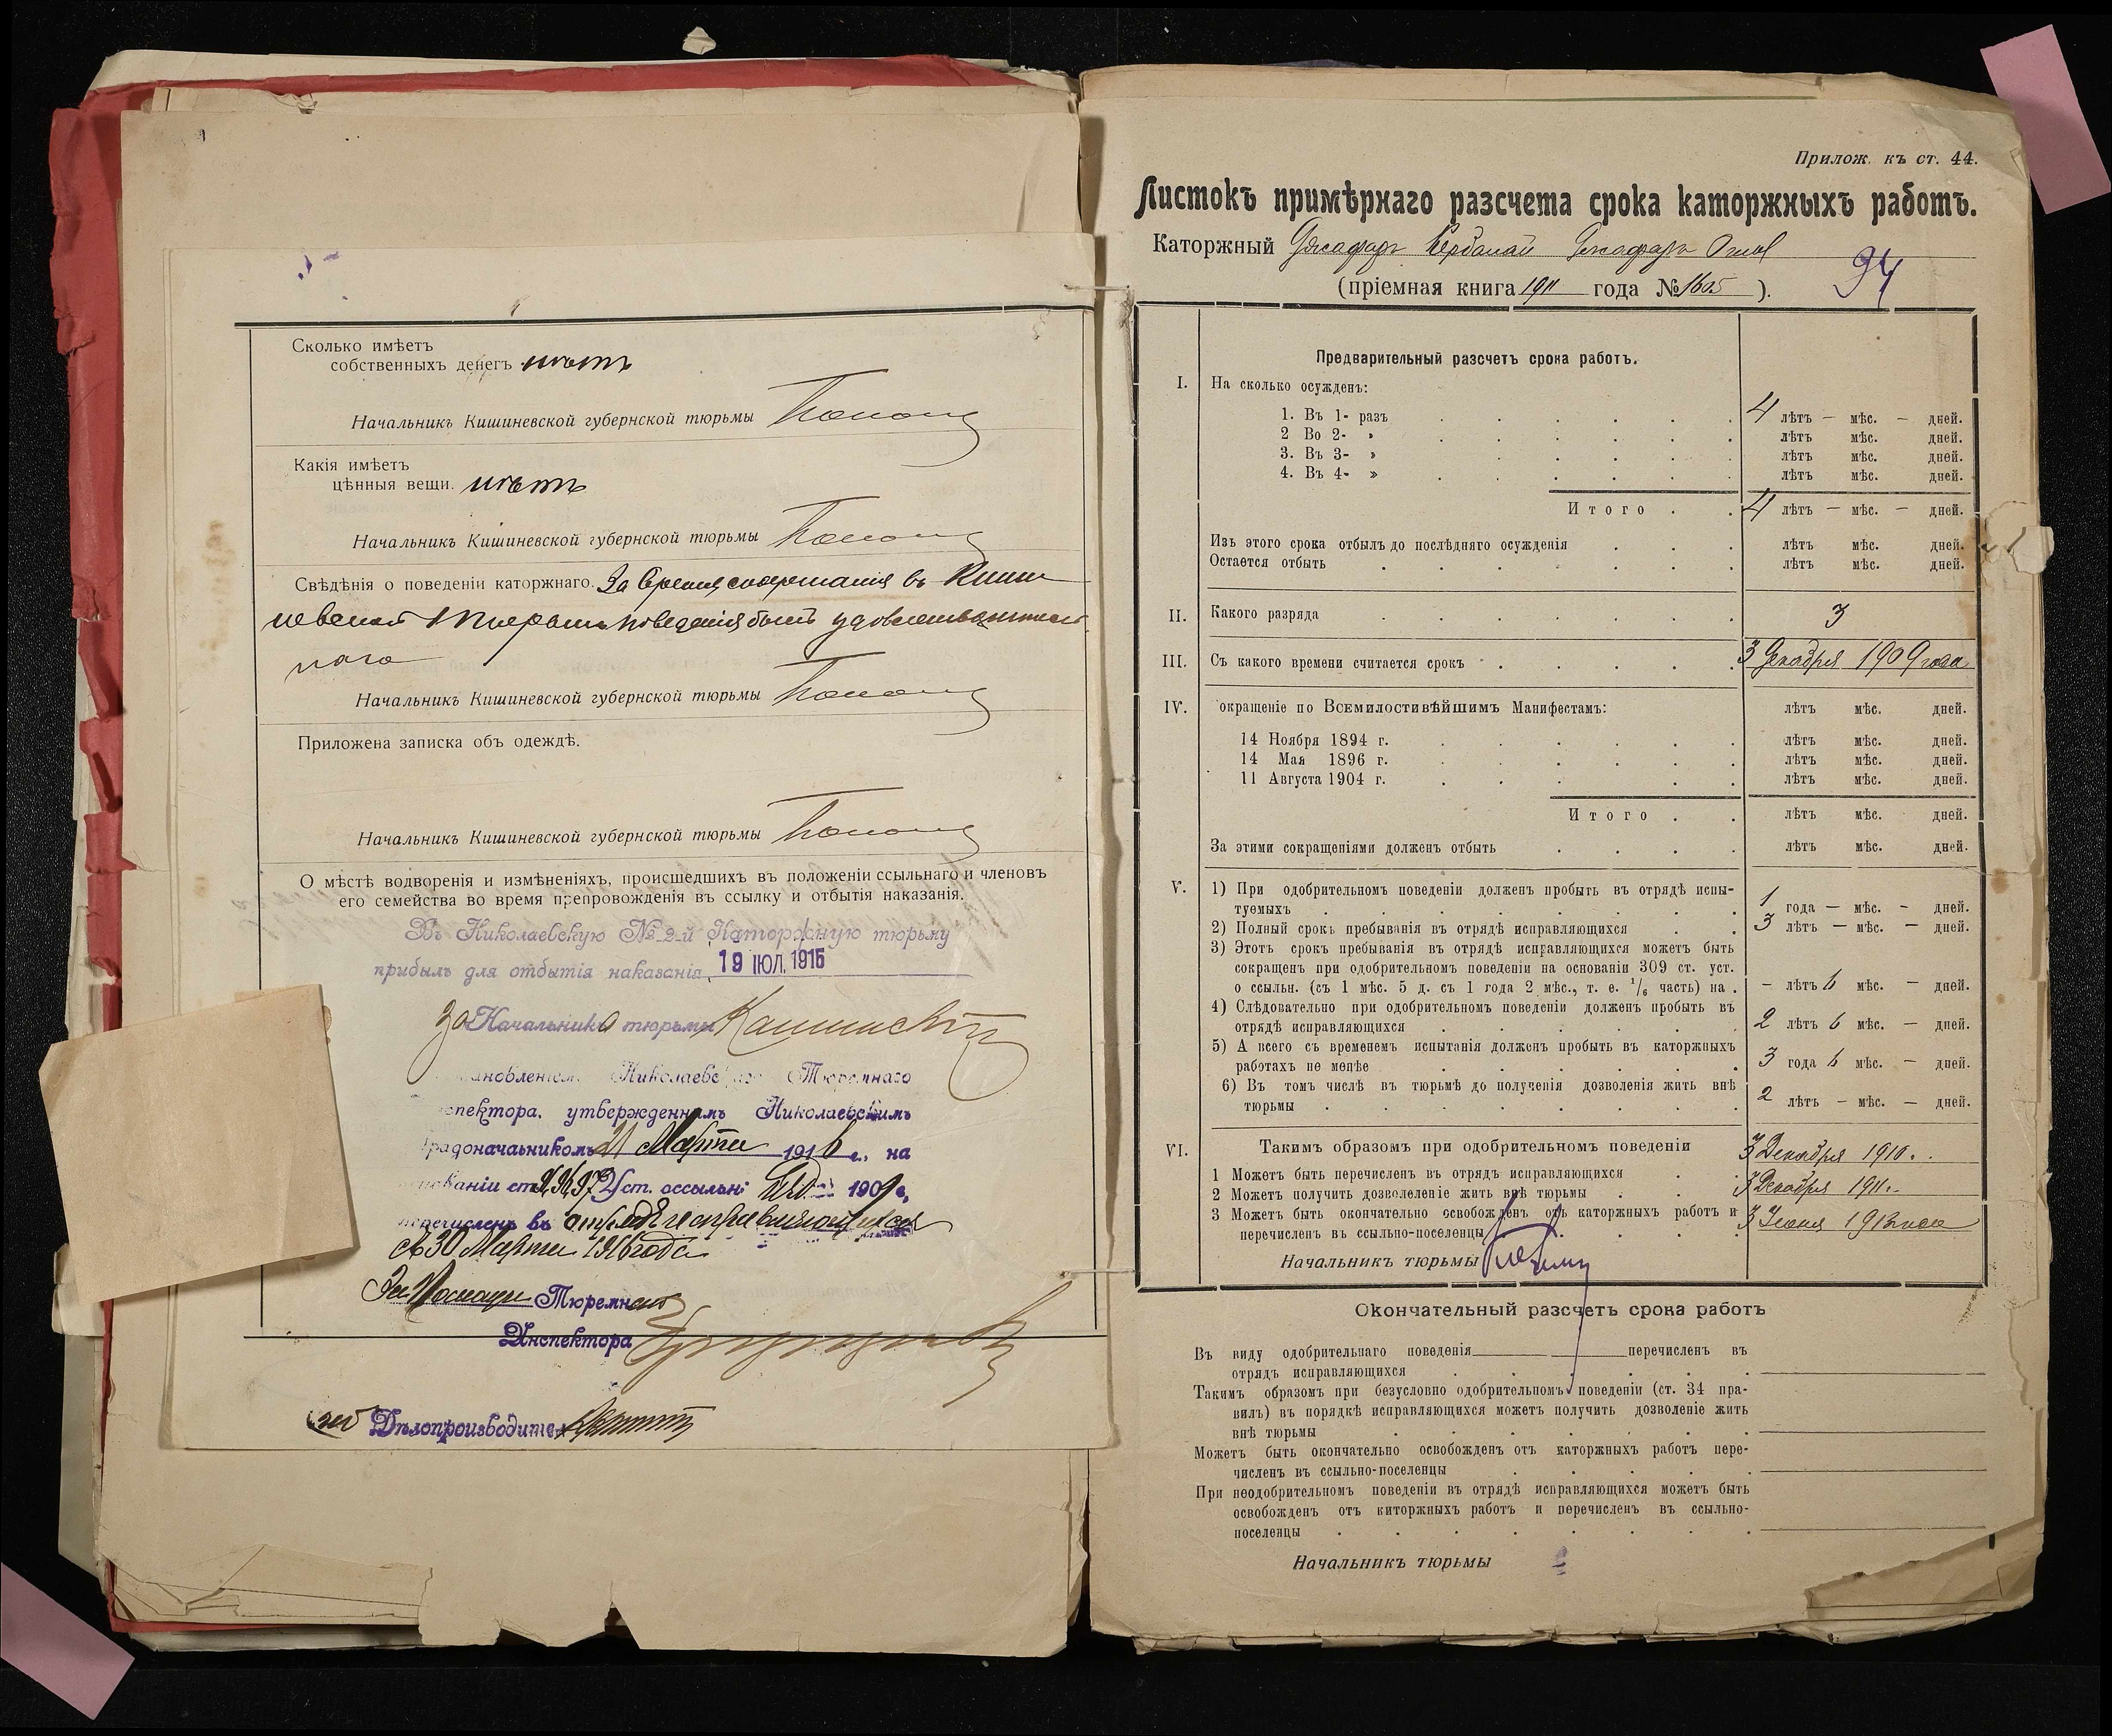 Сколько имѣетъ
собственныхъ денегъ нѣтъ
Начальникъ Кишиневской губернской тюрьмы
Какія имѣетъ
цѣнныя вещи. нѣтъ
Начальникъ Кишиневской губернской тюрьмы
Свѣдѣнія о поведеніи каторжнаго. За время содержанія въ Киши
невской тюрьмѣ поведенія былъ удовлетворитель
наго
Начальникъ Кишиневской губернской тюрьмы
Приложена записка объ одеждѣ.
Начальникъ Кишиневской губернской тюрьмы
О мѣстѣ водворенія и измѣненіяхъ, происшедшихъ въ положеніи ссыльнаго и членовъ
его семейства во время препровожденія въ ссылку и отбытія наказанія.
Въ Николаевскую № 2-й Каторжную тюрьму
прибылъ для отбытія наказанія 19 ІЮЛ. 1915
За Начальника тюрьмы
ановленіем. Николаевс Тюремнаго
спектора, утвержденнымъ Николаевскимъ
радоначаьникомъ 21 Марта 1916 г., на
ованіи ст. Уст. о ссыльн. изд. 1909 г.
перечисленъ въ отрядъ исправляющихся
съ 30 Марта 1916 года
За Помощн. Тюремнаго
Инспектора
Дѣлопроизводитель
Прилож. къ ст. 44.
Листокъ примѣрнаго разсчета срока каторжныхъ работъ.
Каторжный Джафаръ Кербалай Джафаръ Оглы
(пріемная книга 1911 года № 1605 ). 94
Предварительный разсчетъ срока работъ.
I. На сколько осужденъ:
1. Въ 1- разъ 4 лѣтъ — мѣс. — дней.
2 Во 2- » лѣтъ мѣс. дней.
3. Въ 3- » лѣтъ мѣс. дней.
4. Въ 4- » лѣтъ мѣс. дней.
Итого 4 лѣтъ — мѣс. — дней.
Изъ этого срока отбылъ до послѣдняго осужденія лѣтъ мѣс. дней.
Остается отбыть лѣтъ мѣс. дней.
II. Какого разряда 3
III. Съ какого времени считается срокъ 3 Декабря 1909 года
IV. окращеніе по Всемилостивѣйшимъ Манифестамъ: лѣтъ мѣс. дней.
14 Ноября 1894 г. лѣтъ мѣс. дней.
14 Мая 1896 г. лѣтъ мѣс. дней.
11 Августа 1904 г. лѣтъ мѣс. дней.
Итого лѣтъ мѣс. дней.
За этими сокращеніями долженъ отбыть лѣтъ мѣс. дней.
V. 1) При одобрительномъ поведеніи долженъ пробыть въ отрядѣ испы-
туемыхъ 1 года — мѣс. - дней.
2) Полный срокъ пребыванія въ отрядѣ исправляющихся 3 лѣтъ — мѣс. — дней.
3) Этотъ срокъ пребыванія въ отрядѣ исправляющихся можетъ быть
сокращенъ при одобрительномъ поведеніи на основаніи 309 ст. уст.
о ссыльн. (съ 1 мѣс. 5 д. съ 1 года 2 мѣс., т. е. 1/6 часть) на . — лѣтъ 6 мѣс. — дней.
4) Слѣдовательно при одобрительномъ поведеніи долженъ пробыть въ
отрядѣ исправляющихся 2 лѣтъ 6 мѣс. — дней.
5) А всего съ временемъ испытанія долженъ пробыть въ каторжныхъ
работахъ не менѣе 3 года 6 мѣс. — дней.
6) Въ томъ числѣ въ тюрьмѣ до полученія дозволенія жить внѣ
тюрьмы 2 лѣтъ - мѣс. — дней.
VI. Такимъ образомъ при одобрительномъ поведеніи
1 Можетъ быть перечисленъ въ отрядъ исправляющихся 3 Декабря 1910 г.
2 Можетъ получить дозволеленіе жить внѣ тюрьмы 3 Декабря 1911 г.
3 Можетъ быть окончательно освобожденъ отъ каторжныхъ работъ и
перечисленъ въ ссыльно-поселенцы 3 Іюня 1913 года
Начальникъ тюрьмы
Окончательный разсчетъ срока работъ
Въ виду одобрительнаго поведенія перечисленъ въ
отрядъ исправляющихся
Такимъ образомъ при безусловно одобрительномъ поведеніи (ст. 34 пра-
вилъ) въ порядкѣ исправляющихся можетъ получить дозволеніе жить
внѣ тюрьмы
Можетъ быть окончательно освобожденъ отъ каторжныхъ работъ пере-
численъ въ ссыльно-поселенцы
При неодобрительномъ поведеніи въ отрядѣ исправляющихся можетъ быть
освобожденъ отъ киторжныхъ работъ и перечисленъ въ ссыльно-
поселенцы
Начальникъ тюрьмы